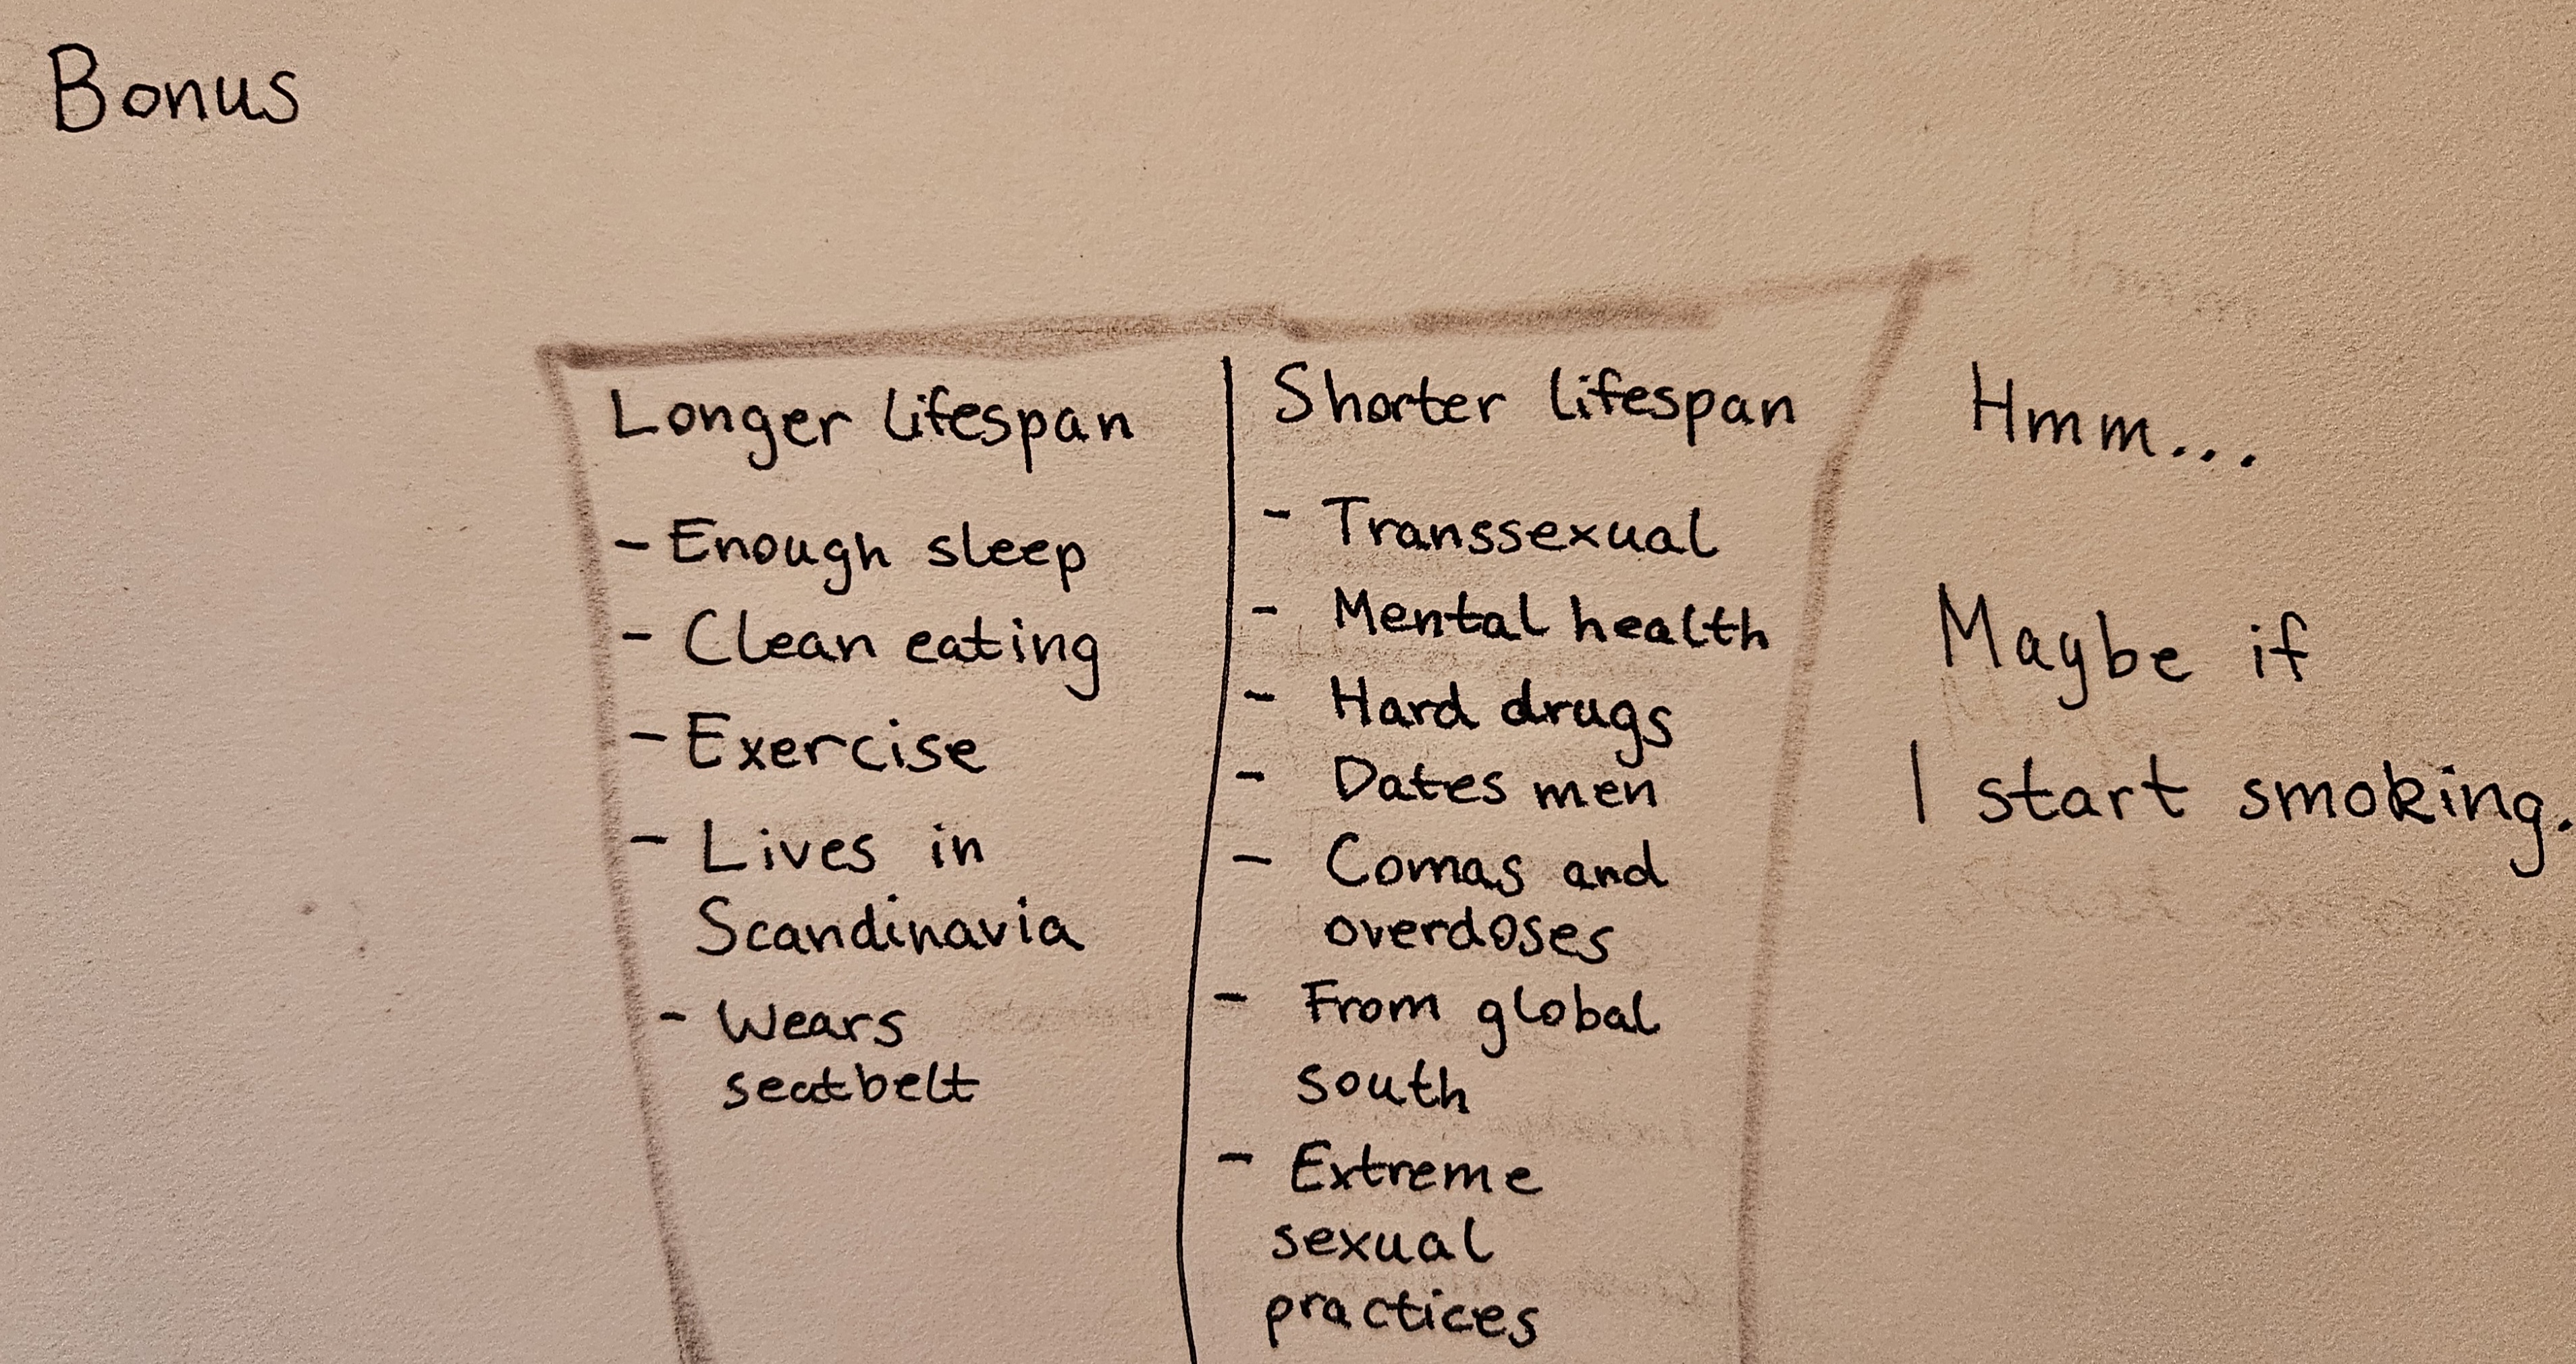 Bonus
Longer lifespan
- Enough sleep
- Clean eating
- Exercise
- Lives in
Scandinavia
- Wears
seatbelt
Shorter lifespan
- Transsexual
- Mental health
- Hard drugs
- Dates men
- Comas and
overdoses
- From global
south
- Extreme
sexual
practices
Hmm...
Maybe if
I start smoking.